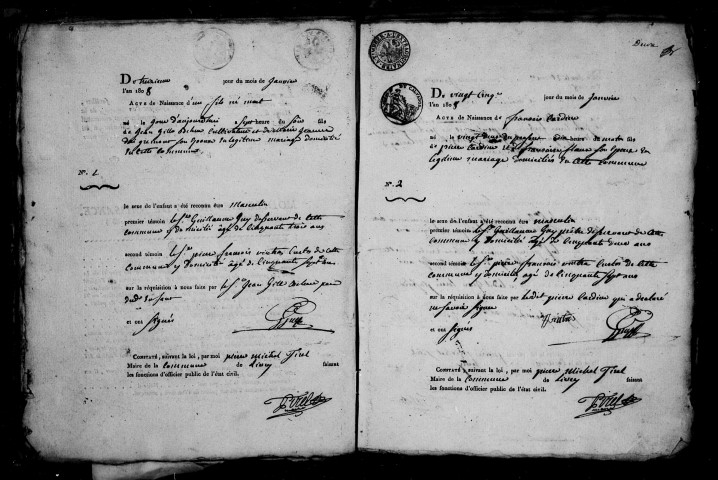 Du treizieme jour du mois de Janvier
l'an 1808
Acte de Naissance d'un fils né mort
né le jour d'aujourd'hui a sept heure du soir fils
de Jean Gille cultivateur et de
son épouse en légitime mariage domiciliés
de cette commune
N°. 1
Le sexe de l'enfant a été reconnu être masculin
premier témoin le Sr. Guillaume Guy desservant de cette
commune y domicilié âgé de cinquante trois ans
second témoin le Sr. pierre françois vintras Custos de cette
commune y domicilié âgé de cinquante sept ans
sur la réquisition à nous faite par le Sr. Jean Gille père
dudit enfant
et ont signés
Constaté, suivant la loi, par moi pierre Michel Tirel
Maire de la commune de Livry faisant
les fonctions d'officier public de l'état civil.
Deux
Du vingt cinq jour du mois de Janvier
l'an 1808
Acte de Naissance de françois Cardine
né le vingt du présent heure du matin fils
de pierre Cardine et de françoise son épouse en
légitime mariage domiciliés de cette commune
N°. 2
Le sexe de l'enfant a été reconnu être masculin
premier témoin le Sr. Guillaume Guy prêtre desservant de cette
commune y domicilié âgé de cinquante trois ans
second témoin le Sr. pierre françois vintras Custos de cette
commune y domicilié âgé de cinquante sept ans
sur la réquisition à nous faite par ledit pierre Cardine qui a déclaré
ne savoir signer
et ont signés vintras
Constaté, suivant la loi, par moi pierre Michel Tirel
Maire de la commune de Livry faisant
les fonctions d'officier public de l'état civil.